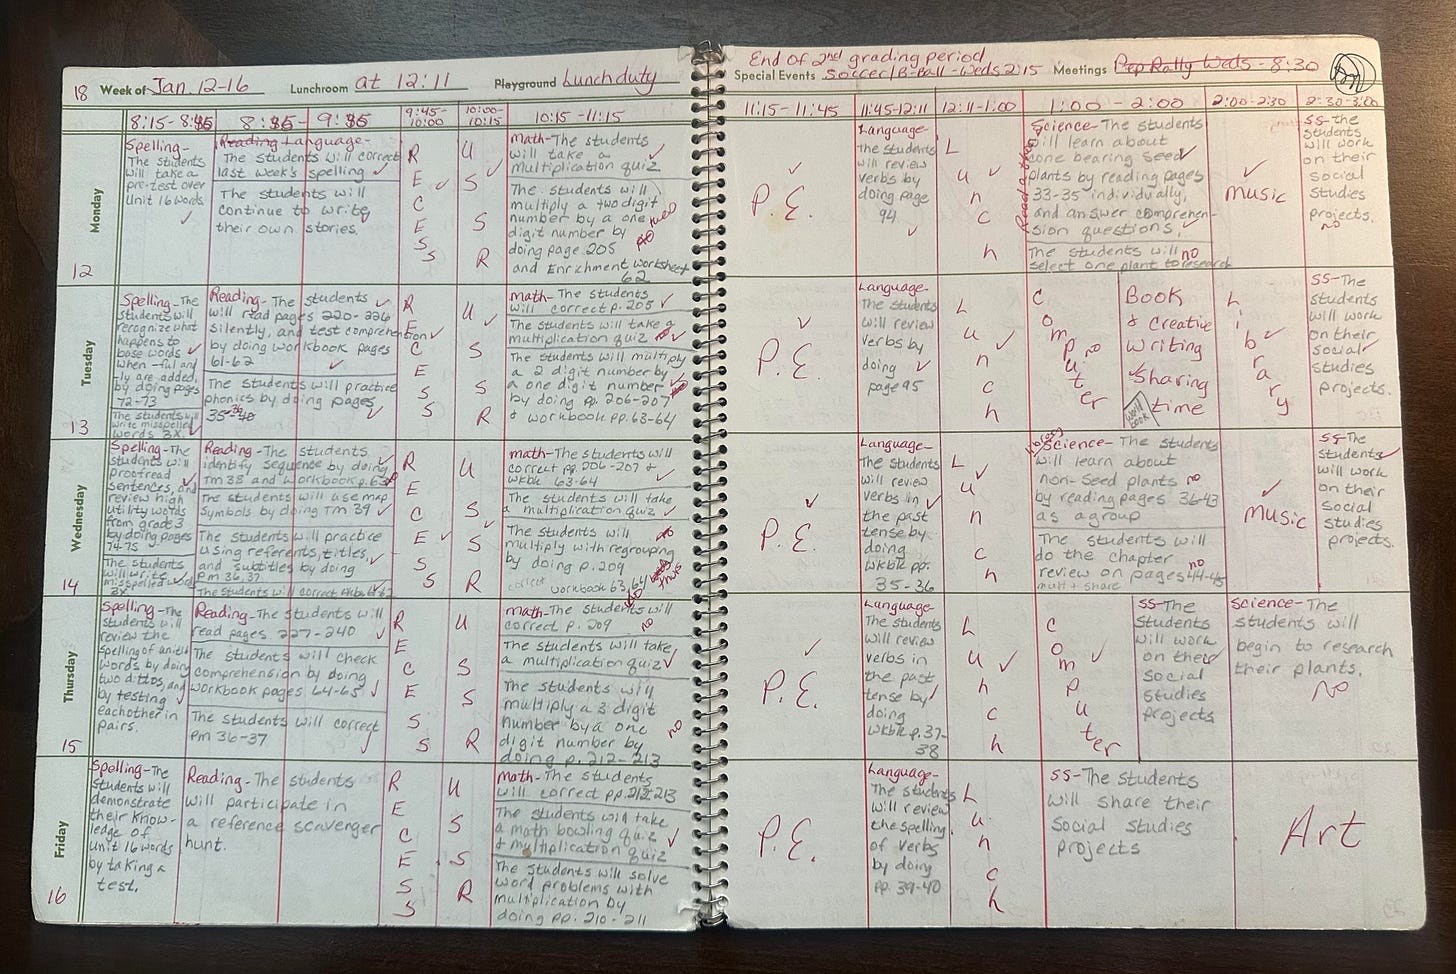 18 Week of Jan. 12-16 Lunchroom at 12:11 Playground Lunch duty
8:15-8:35
8:35-9:35
9:45-
10:00
10:00-
10:15
10:15-11:15
Monday
12
Spelling-
The students
will take a
pre-test over
Unit 16 words
Reading Language-
The students will correct
last week's spelling
The students will
continue to write
their own stories.
R
E
C
E
S
S
U
S
S
R
Math-The students
will take a
multiplication quiz
The students will
multiply a two digit
number by a one
digit number by
doing page 205
and Enrichment Worksheet
62
Tuesday
13
Spelling-The
students will
recognize what
happens to
base words
when -ful and
-ly are added,
by doing pages
72-73
The students will
write misspelled
words 3X.
Reading- The students
will read pages 220-226
silently, and test comprehension
by doing workbook pages
61-62
The students will practice
phonics by doing pages
35-
R
E
C
E
S
S
U
S
S
R
Math-The students
will correct p. 205
The students will take a
multiplication quiz
The students will multiply
a 2 digit number by
a one digit number
by doing pp. 206-207
+ workbook pp. 63-64
Wednesday
14
Spelling-The
students will
proofread
sentences, and
review high
utility words
from grade 3
by doing pages
74-75
The students
will write
misspelled words
3X
Reading-The students
identify sequence by doing
TM 38 and workbook p. 63
The students will use map
symbols by doing TM 39
The students will practice
using referents, titles,
and subtitles by doing
pm 36, 37
The students will correct
R
E
C
E
S
S
U
S
S
R
Math-The students will
correct pp. 206-207 +
wkbk 63-64
The students will take
a multiplication quiz
The students will no
multiply with regrouping
by doing p. 209
correct workbook 63, 64
Thurs
Thursday
15
Spelling-The
students will
review the
spelling of unit 16
words by doing
two dittos, and
by testing
eachother in
pairs.
Reading-The students will
read pages 227-240
The students will check
comprehension by doing
workbook pages 64-65
The students will correct
pm 36-37
R
E
C
E
S
S
U
S
S
R
Math-The students will
correct p. 209 no
The students will take
a multiplication quiz
The students will
multiply a 3 digit
number by a one
digit number by
doing p. 212-213
no
Friday
16
Spelling-The
students will
demonstrate
their know-
ledge of
Unit 16 words
by taking a
test.
Reading-The students
will participate in
a reference scavenger
hunt.
R
E
C
E
S
S
U
S
S
R
Math-The students
will correct pp. 212-213
The students will take
a math bowling quiz
+ multiplication quiz
The students will solve
word problems with
multiplication by
doing pp. 210-211
End of 2nd grading period
Special Events Soccer/B-Ball-Weds 2:15 Meetings Pep Rally Weds - 8:30
11:15-11:45
11:45-12:11
12:11-1:00
1:00 - 2:00
2:00-2:30
2:30-3:00
P.E.
Language-
The students
will review
verbs by
doing page
94
L
u
n
c
h
Science- The students
will learn about
cone bearing seed
plants by reading pages
33-35 individually,
and answer comprehen-
sion questions.
The students will no
select one plant to research
music
SS-The
students
will work
on their
social
studies
projects.
no
P.E.
Language-
The students
will review
verbs by
doing
page 95
L
u
n
c
h
C
o
m
p no
u
ter
Book
+ creative
writing
sharing
time
work
book
L
i
b
r
a
r
y
SS-The
students
will work
on their
social
studies
projects.
P.E.
Language-
The students
will review
verbs in
the past
tense by
doing
wkbk pp.
35-36
L
u
n
c
h
Science- The students
will learn about
non-seed plants no
by reading pages 36-43
as a group
The students will
do the chapter
review on pages 44-45 no
share
music
SS-The
students
will work
on their
social
studies
projects.
P.E.
Language-
The students
will review
verbs in
the past
tense by
doing
wkbk p. 37-
38
L
u
n
c
h
C
o
m
p
u
ter
SS-The
students
will work
on their
social
studies
projects
Science-The
students will
begin to research
their plants.
no
P.E.
Language-
The students
will review
the spelling
of verbs
by doing
pp. 39-40
L
u
n
c
h
SS-The students
will share their
Social studies
projects
Art